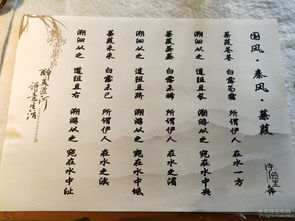 国风·秦风·蒹葭
蒹葭苍苍 白露為霜 所谓伊人 在水一方
溯洄从之 道阻且长 溯游从之 宛在水中央
蒹葭萋萋 白露未晞 所谓伊人 在水之湄
溯洄从之 道阻且跻 溯游从之 宛在水中坻
蒹葭采采 白露未已 所谓伊人 在水之涘
溯洄从之 道阻且右 溯游从之 宛在水中沚